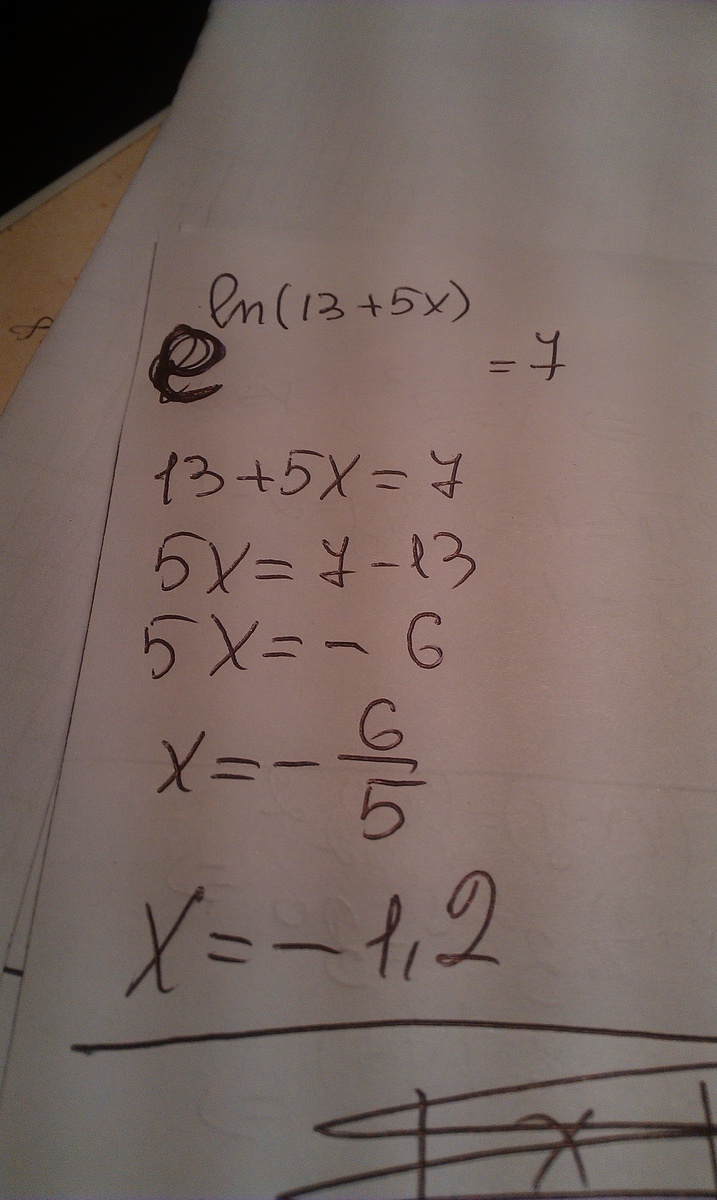 e^ln(13+5x) = 7
13+5x=7
5x=7-13
5x=-6
x=-6/5
x=-1,2
x